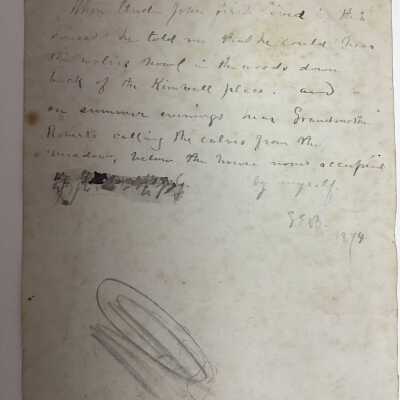 When Uncle John first lived in this
he told me that he could hear
the wolves howl in the woods down
back of the Kimball place. and
on summer evenings hear Grandmother
Roberts calling the calves from the
meadow, below the house now occupied
by myself
1874